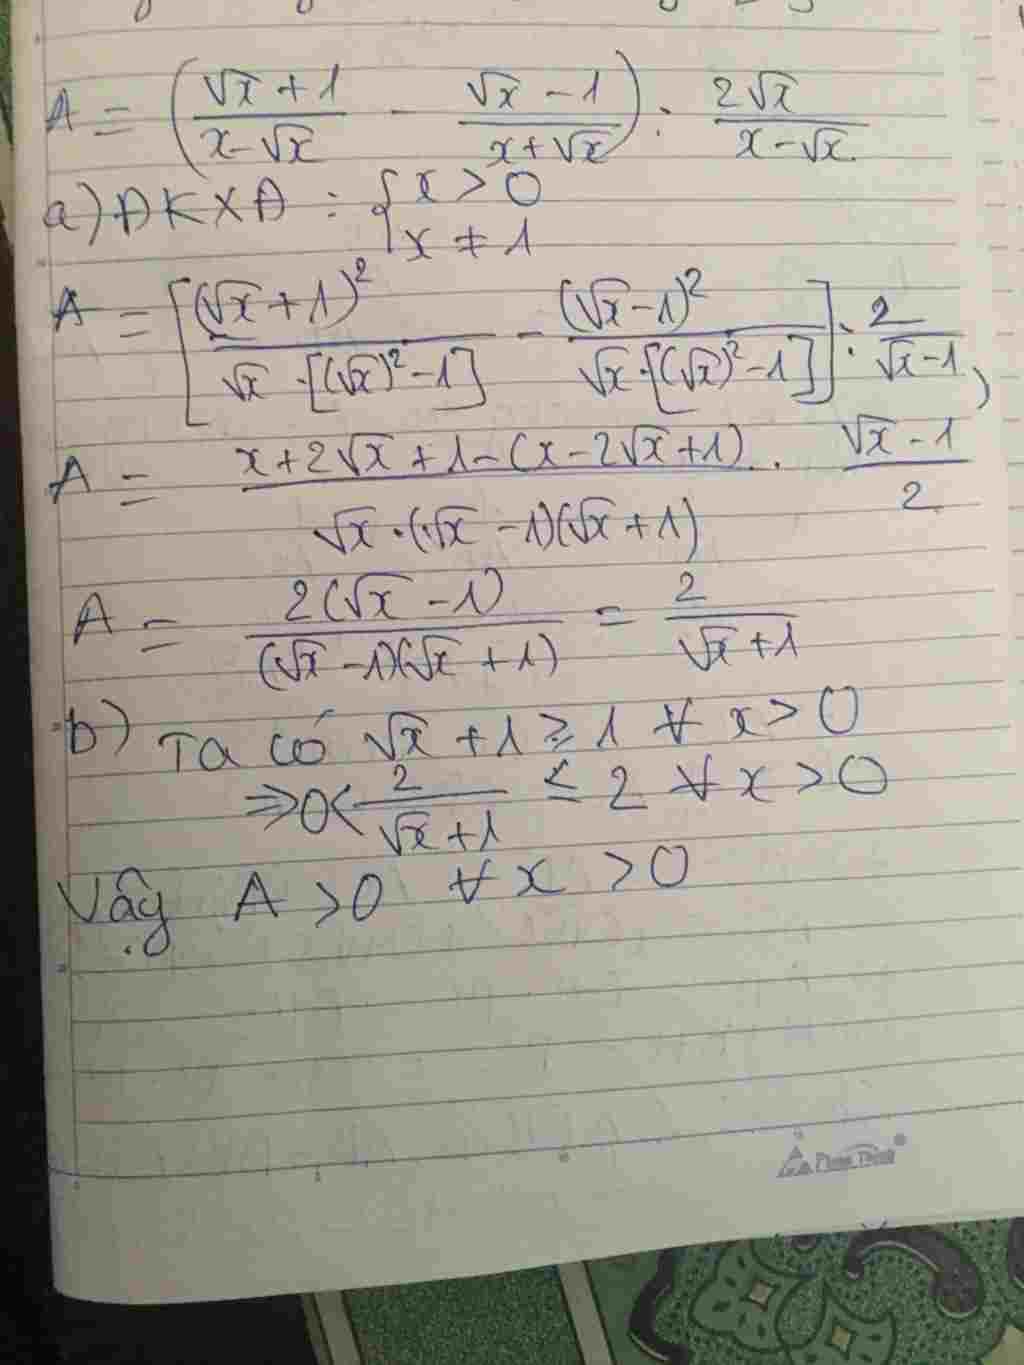 A = ( (√x + 1)/(x - √x) - (√x - 1)/(x + √x) ) : 2√x/(x - √x)
a) ĐKXĐ : { x > 0
x ≠ 1
A = [ (√x + 1)²/(√x · [(√x)² - 1]) - (√x - 1)²/(√x · [(√x)² - 1]) ] : 2/(√x - 1)
A = (x + 2√x + 1 - (x - 2√x + 1))/(√x · (√x - 1)(√x + 1)) · (√x - 1)/2
A = 2(√x - 1)/((√x - 1)(√x + 1)) = 2/(√x + 1)
b) Ta có √x + 1 ≥ 1 ∀ x > 0
⇒ 0 < 2/(√x + 1) ≤ 2 ∀ x > 0
Vậy A > 0 ∀ x > 0